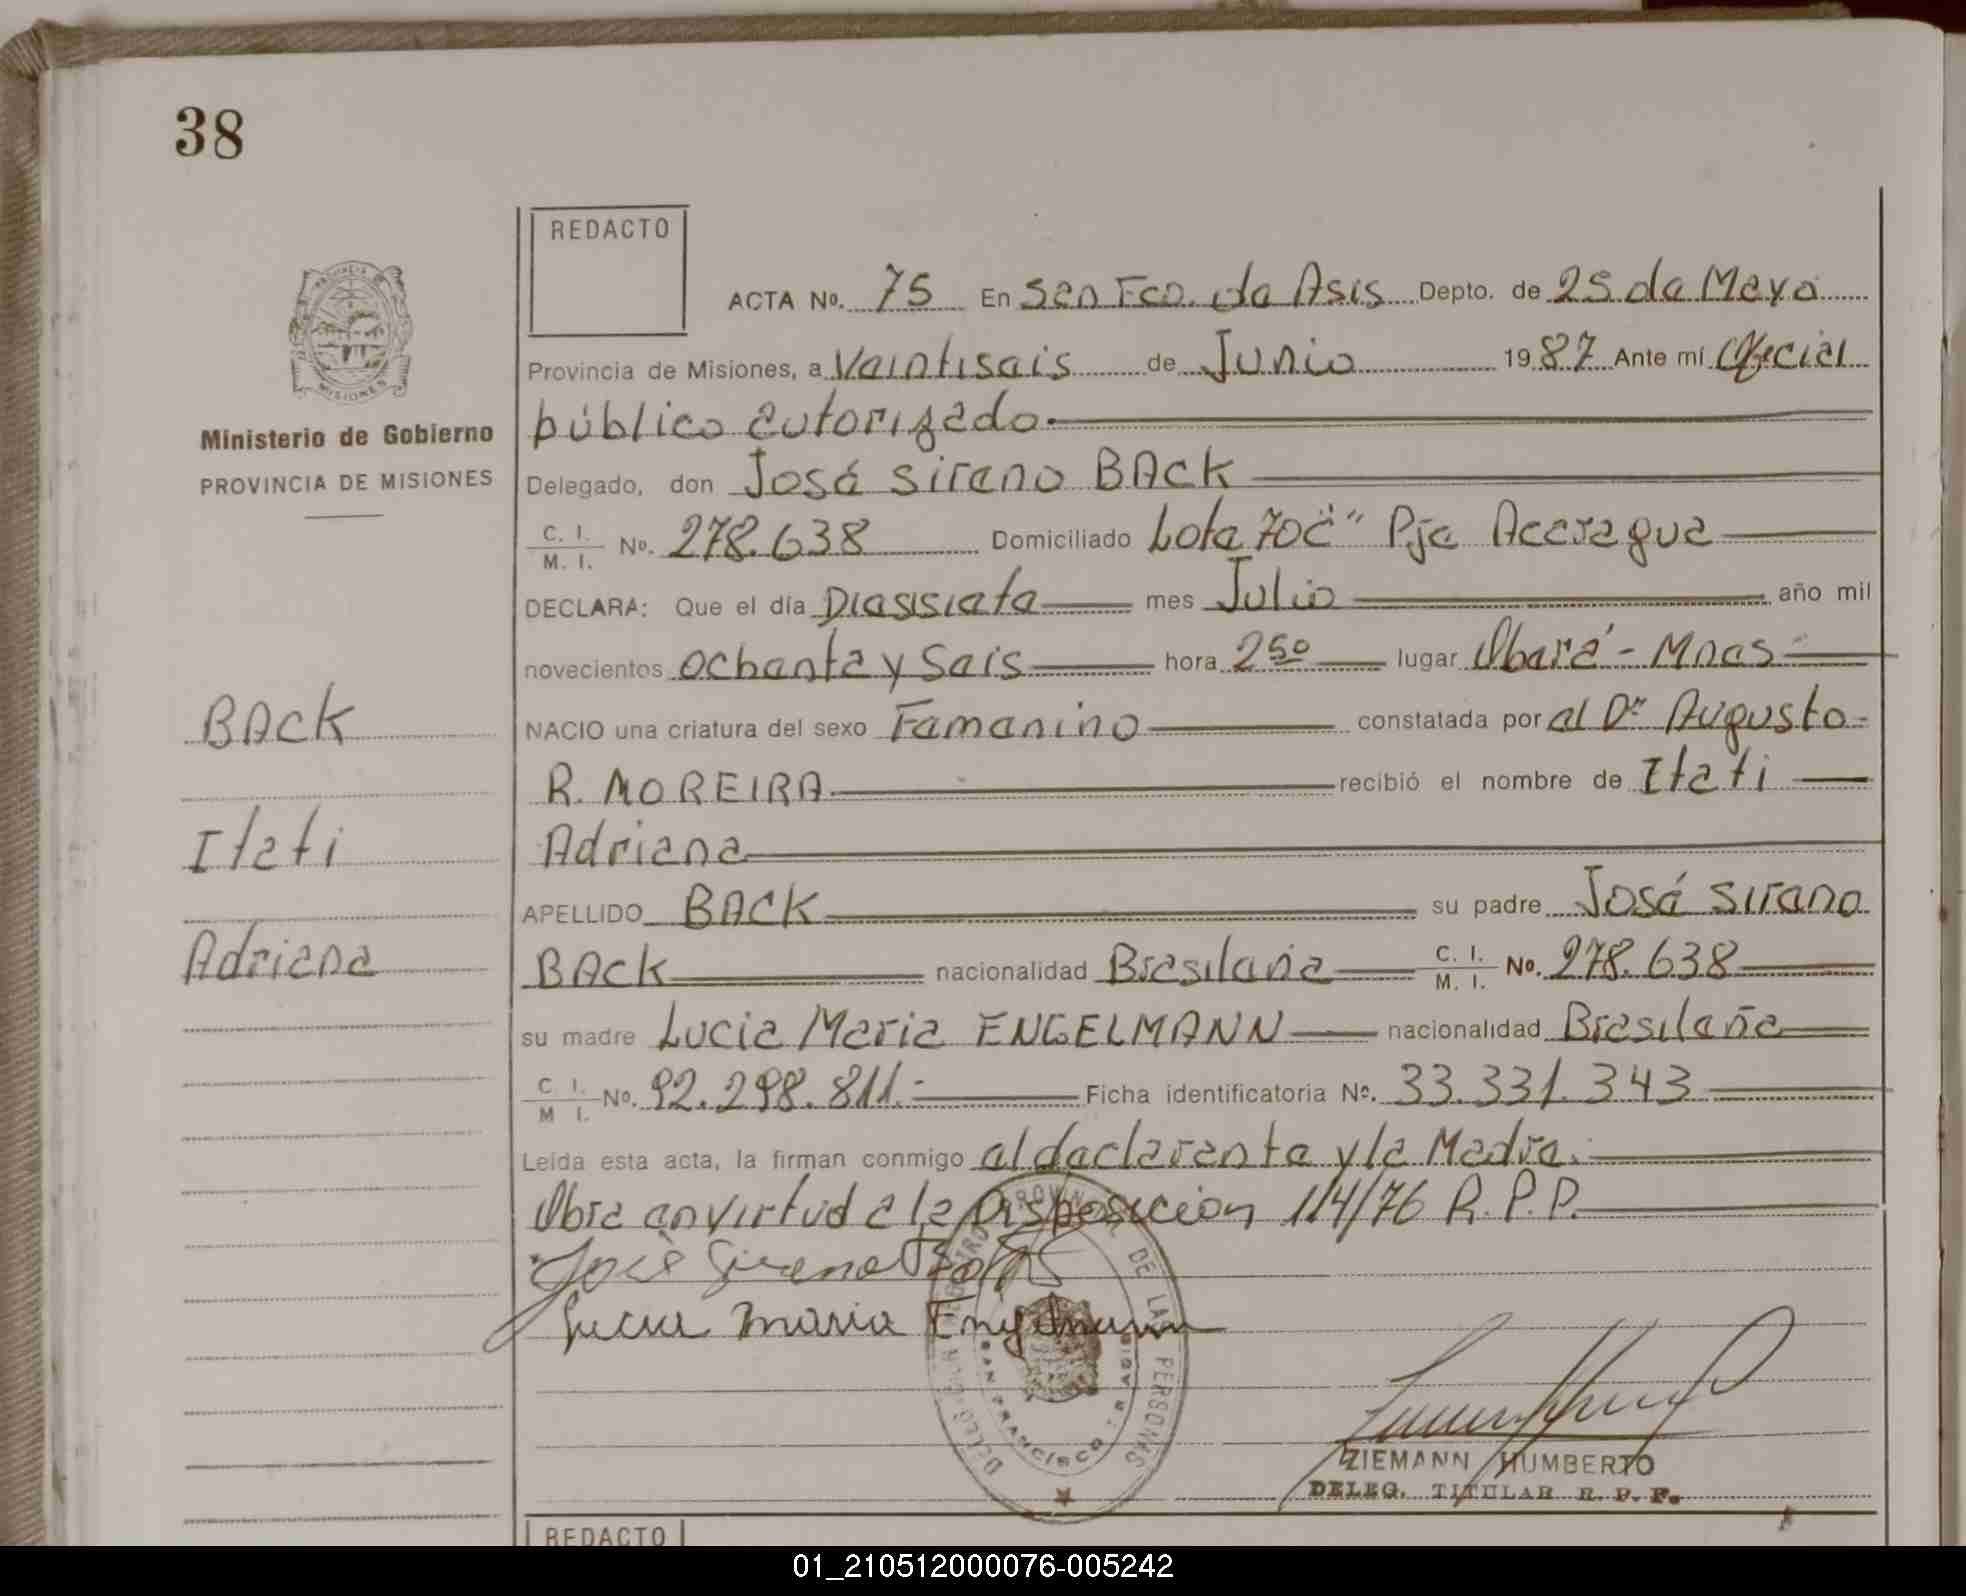 38
REDACTO
ACTA No. 75 En San Fco. de Asis Depto. de 25 de Mayo
Provincia de Misiones, a Veintiseis de Junio 1987 Ante mí Oficial
público autorizado.
Ministerio de Gobierno
PROVINCIA DE MISIONES
Delegado, don José Sireno BACK
C. I. M. I. No. 278.638 Domiciliado Lote 70c" Pje Acaragua
DECLARA: Que el día Diesisiete mes Julio año mil
novecientos ochenta y Seis hora 2 50 lugar Oberá - Mnes
BACK
NACIO una criatura del sexo Femenino constatada por el Dr Augusto
R. MOREIRA recibió el nombre de Itati
Itati
Adriana
APELLIDO BACK su padre José Sireno
Adriana
BACK nacionalidad Brasileña C. I. M. I. No. 278.638
su madre Lucia Maria ENGELMANN nacionalidad Brasileña
C. I. M I. No. 92.298.811.- Ficha identificatoria Nº. 33.331.343
Leída esta acta, la firman conmigo el declarante y la Madre.
Obra en virtud a la Disposición 114/76 R.P.P.
José Sireno Back
Lucia Maria Engelmann
PROVINCIAL DE LAS PERSONAS
SAN FRANCISCO DE ASIS
ZIEMANN HUMBERTO
DELEG. TITULAR R. P. P.
REDACTO
01_210512000076-005242